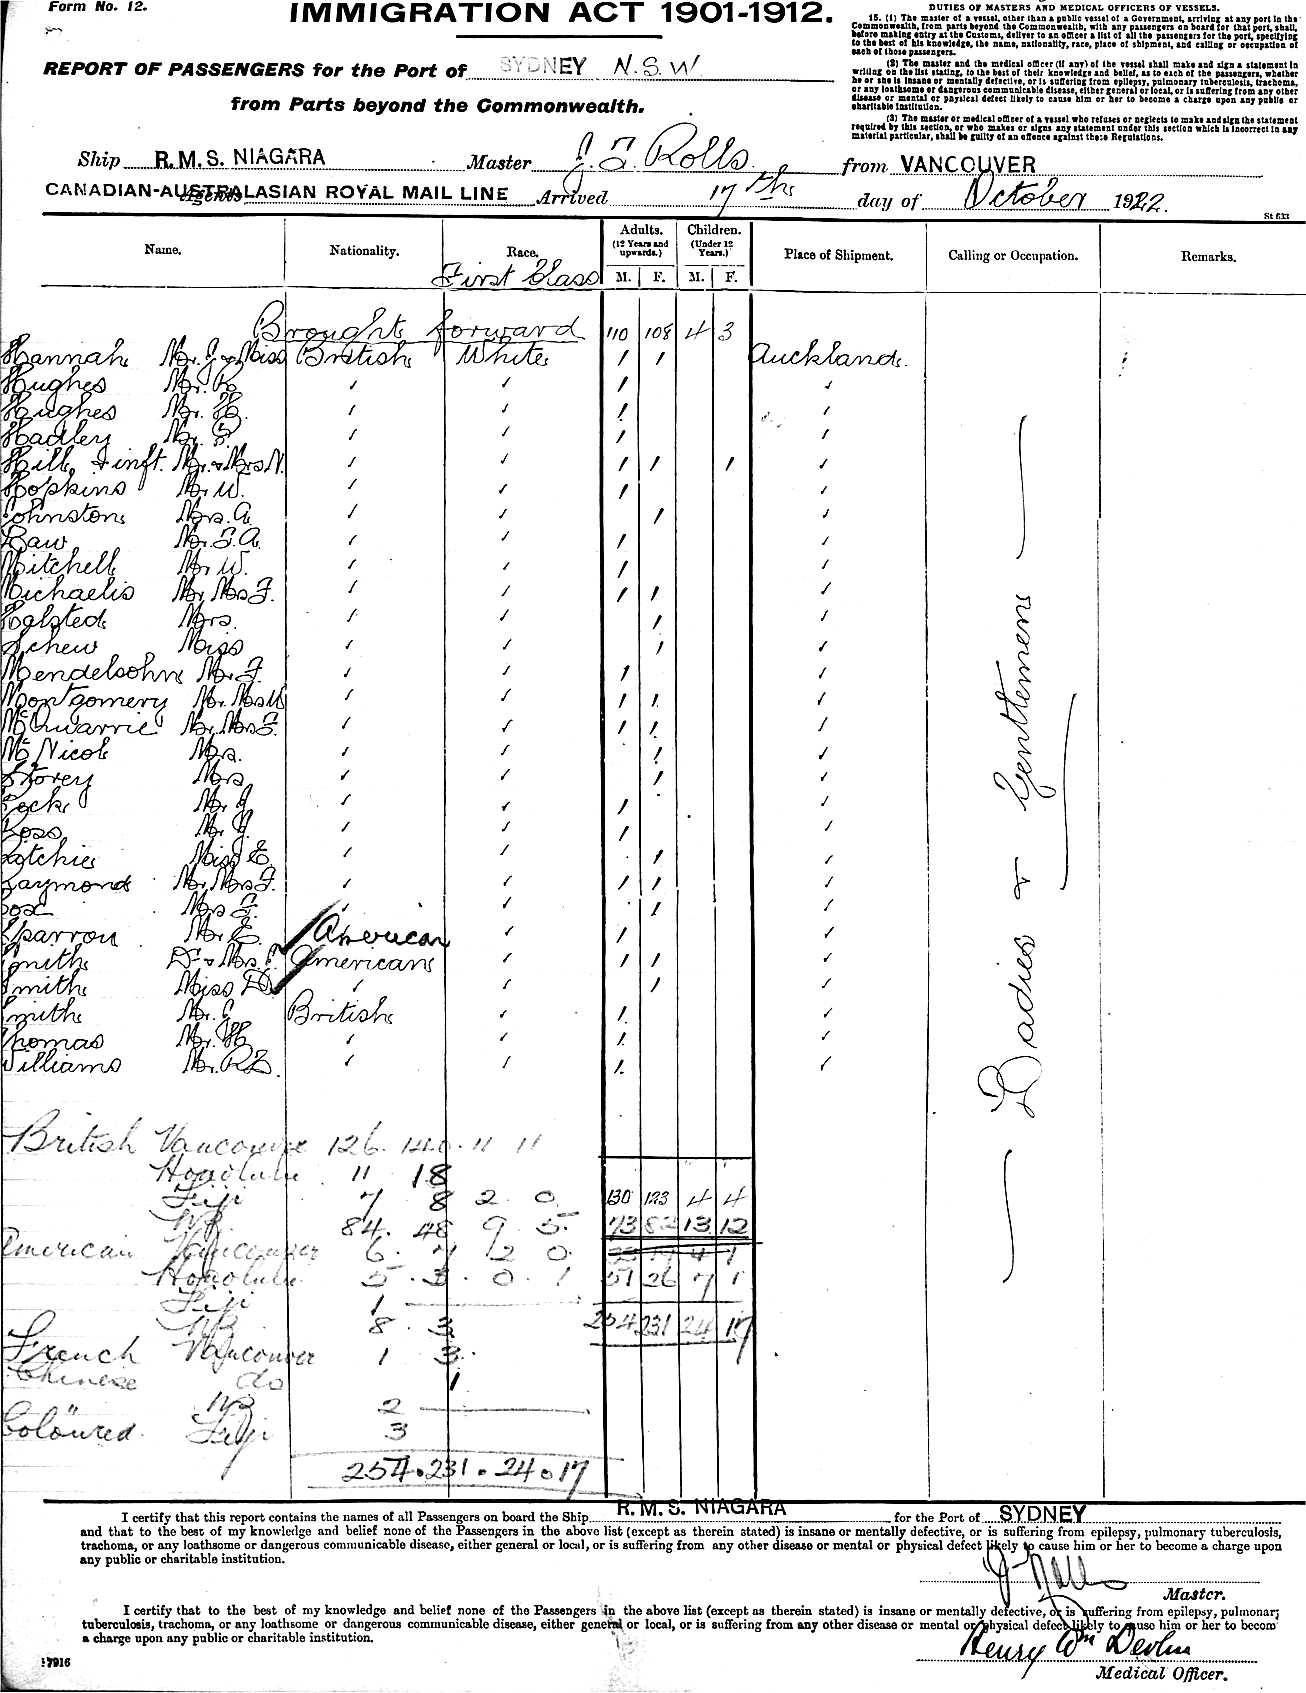 Form No. 12.
IMMIGRATION ACT 1901-1912.
DUTIES OF MASTERS AND MEDICAL OFFICERS OF VESSELS.
15. (1) The master of a vessel, other than a public vessel of a Government, arriving at any port in the
Commonwealth, from parts beyond the Commonwealth, with any passengers on board for that port, shall,
before making entry at the Customs, deliver to an officer a list of all the passengers for the port, specifying
to the best of his knowledge, the name, nationality, race, place of shipment, and calling or occupation of
each of those passengers.
(2) The master and the medical officer (if any) of the vessel shall make and sign a statement in
writing on the list stating, to the best of their knowledge and belief, as to each of the passengers, whether
he or she is insane or mentally defective, or is suffering from epilepsy, pulmonary tuberculosis, trachoma,
or any loathsome or dangerous communicable disease, either general or local, or is suffering from any other
disease or mental or physical defect likely to cause him or her to become a charge upon any public or
charitable institution.
(3) The master or medical officer of a vessel who refuses or neglects to make and sign the statement
required by this section, or who makes or signs any statement under this section which is incorrect in any
material particular, shall be guilty of an offence against these Regulations.
REPORT OF PASSENGERS for the Port of SYDNEY N.S.W
from Parts beyond the Commonwealth.
Ship R.M.S. NIAGARA Master J. T. Rolls. from VANCOUVER
CANADIAN-AUSTRALASIAN ROYAL MAIL LINE Arrived 17th day of October 1922.
St 633
Name. Nationality. Race. Adults. (12 Years and upwards.) Children. (Under 12 Years.) Place of Shipment. Calling or Occupation. Remarks.
First Class M. F. M. F.
Brought forward 110 108 4 3
Hannah Mr. J & Miss British White 1 1 Auckland.
Hughes Mr. R ✓ ✓ 1 ✓
Hughes Mr. H. ✓ ✓ 1 ✓
Hadley Mr. ✓ ✓ 1 ✓
Hill, & inft. Mr. & Mrs N. ✓ ✓ 1 1 1 ✓
Hopkins Mr. W. ✓ ✓ 1 ✓
Johnston Mrs. A ✓ ✓ 1 ✓
Law Mr. F. A. ✓ ✓ 1 ✓
Mitchell Mr. W. ✓ ✓ 1 ✓
Michaelis Mr, Mrs F. ✓ ✓ 1 1 ✓
Mrs. ✓ ✓ 1 ✓
Miss ✓ ✓ 1 ✓
Mendelsohn Mr. F. ✓ ✓ 1 ✓
Montgomery Mr. Mrs W ✓ ✓ 1 1 ✓
McQuarrie Mr, Mrs F. ✓ ✓ 1 1 ✓
McNicol Mrs. ✓ ✓ 1 ✓
Storey Mrs ✓ ✓ 1 ✓
Peck Mr. J ✓ ✓ 1 ✓
Ross, Mr. J. ✓ ✓ 1 ✓
Ritchie Miss E. ✓ ✓ 1 ✓
Raymond Mr, Mrs F. ✓ ✓ 1 1 ✓
Mrs ✓ ✓ 1 ✓
Sparrow Mr. E. American ✓ 1 ✓
Smith Dr & Mrs E. Americans ✓ 1 1 ✓
Smith Miss D ✓ ✓ 1 ✓
Smith Mr. British ✓ 1 ✓
Thomas Mr. H ✓ ✓ 1 ✓
Williams Mr. R ✓ ✓ 1 ✓
Ladies & Gentlemen
British Vancouver 126. 140. 11 11
Honolulu 11 18
Fiji 7 8 2 0 130 123 4 4
NZ 84. 48 9 5 73 82 13 12
American Vancouver 6. 7 2 0
Honolulu 5. 3. 0. 1 51 26 7 1
Fiji 1
NZ 8. 3 254 231 24 17
French Vancouver 1 3
Chinese do 1
" NZ 2
Coloured Fiji 3
254. 231. 24. 17
I certify that this report contains the names of all Passengers on board the Ship R.M.S. NIAGARA for the Port of SYDNEY
and that to the best of my knowledge and belief none of the Passengers in the above list (except as therein stated) is insane or mentally defective, or is suffering from epilepsy, pulmonary tuberculosis,
trachoma, or any loathsome or dangerous communicable disease, either general or local, or is suffering from any other disease or mental or physical defect likely to cause him or her to become a charge upon
any public or charitable institution.
J Rolls
Master.
I certify that to the best of my knowledge and belief none of the Passengers in the above list (except as therein stated) is insane or mentally defective, or is suffering from epilepsy, pulmonary
tuberculosis, trachoma, or any loathsome or dangerous communicable disease, either general or local, or is suffering from any other disease or mental or physical defect likely to cause him or her to becom
a charge upon any public or charitable institution.
Henry Wm Devlin
Medical Officer.
:7916